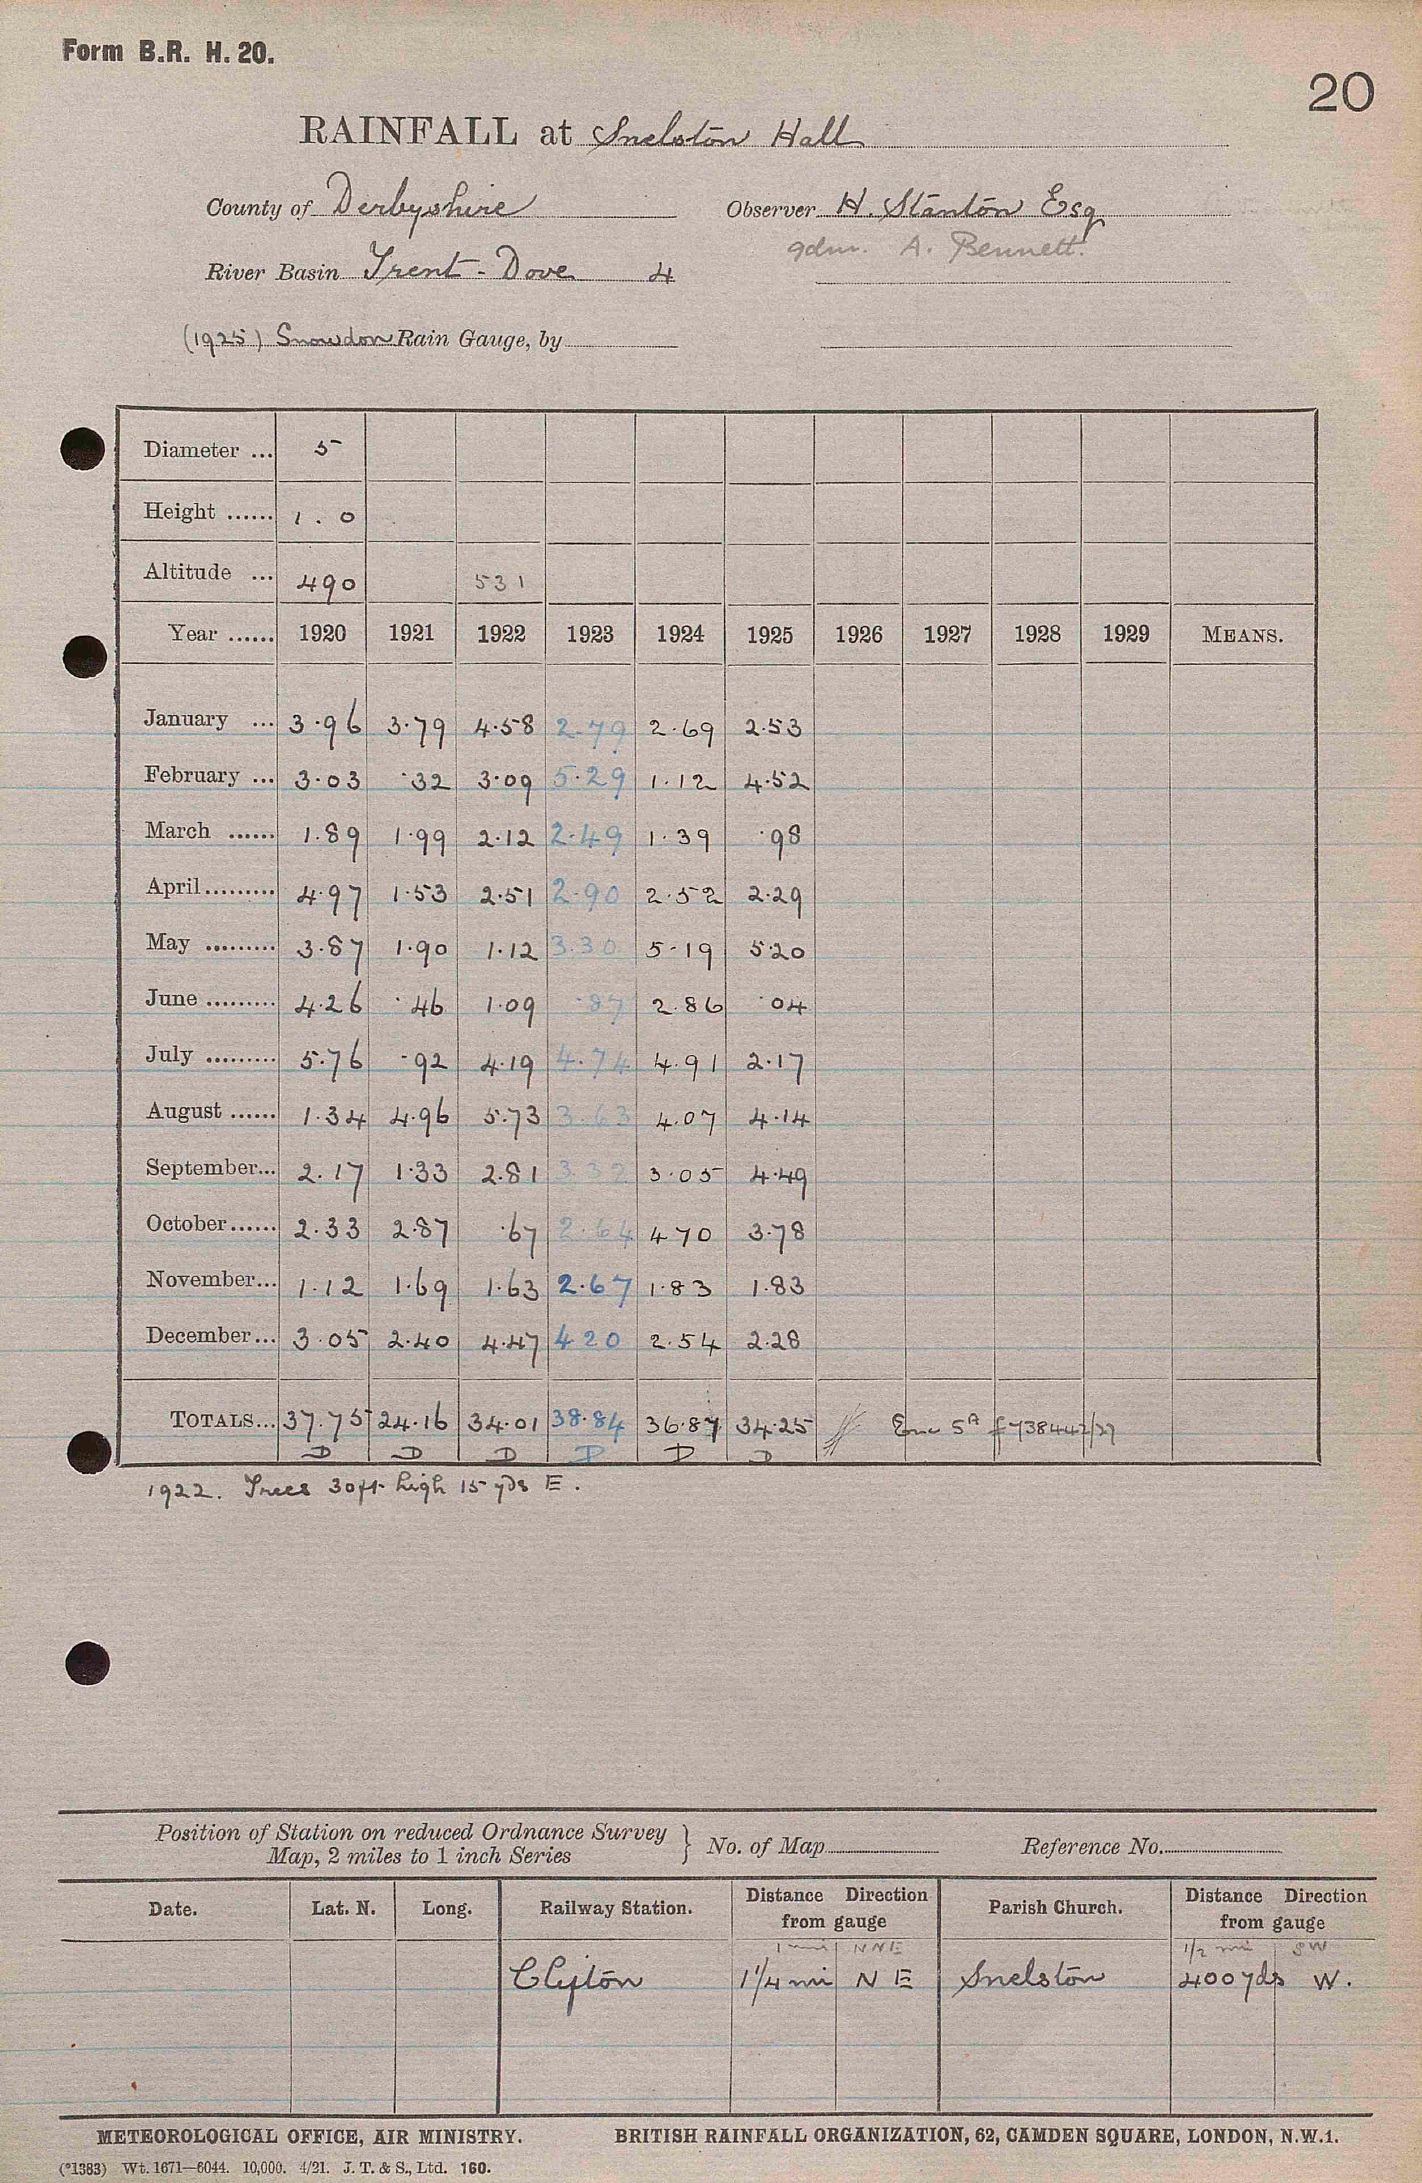 Form B.R. H. 20.
20
RAINFALL at Snelston Hall
County of Derbyshire Observer H. Stanton Esq
gdnr. A. Bennett.
River Basin Trent - Dove 4
(1925) Snowdon Rain Gauge, by
Diameter ... 5
Height ...... 1 . 0
Altitude ... 490 531
Year ...... 1920 1921 1922 1923 1924 1925 1926 1927 1928 1929 MEANS.
January ... 3.96 3.79 4.58 2.79 2.69 2.53
February ... 3.03 .32 3.09 5.29 1.12 4.52
March ...... 1.89 1.99 2.12 2.49 1.39 .98
April ......... 4.97 1.53 2.51 2.90 2.52 2.29
May ......... 3.87 1.90 1.12 3.30 5.19 5.20
June ......... 4.26 .46 1.09 .87 2.86 .04
July ......... 5.76 .92 4.19 4.74 4.91 2.17
August ...... 1.34 4.96 5.73 3.63 4.07 4.14
September... 2.17 1.33 2.81 3.32 3.05 4.49
October ...... 2.33 2.87 .67 2.64 4 70 3.78
November... 1.12 1.69 1.63 2.67 1.83 1.83
December... 3.05 2.40 4.47 4 20 2.54 2.28
TOTALS... 37.75 24.16 34.01 38.84 36.87 34.25 5A f 738442/27
D D D D D D
1922. Trees 30ft high 15 yds E.
Position of Station on reduced Ordnance Survey
Map, 2 miles to 1 inch Series } No. of Map Reference No.
Date. Lat. N. Long. Railway Station. Distance Direction from gauge Parish Church. Distance Direction from gauge
1 mi NNE 1/2 mi SW
Clifton 1 1/4 mi N E Snelston 400 yds W.
METEOROLOGICAL OFFICE, AIR MINISTRY. BRITISH RAINFALL ORGANIZATION, 62, CAMDEN SQUARE, LONDON, N.W.1.
(*1383) Wt. 1671—6044. 10,000. 4/21. J. T. & S., Ltd. 160.